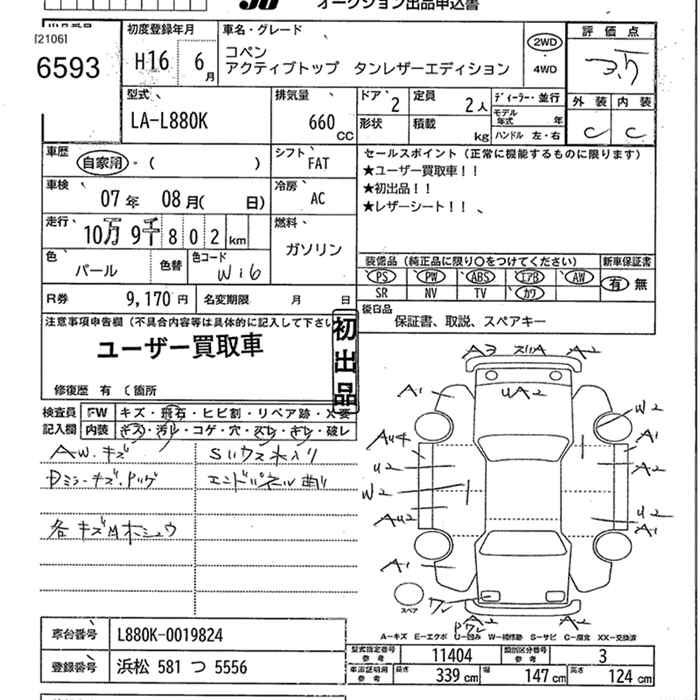 オークション出品申込書
[2106]
6593
初度登録年月
H16 6月
車名・グレード
コペン
アクティブトップ タンレザーエディション
2WD
4WD
評価点
3.5
外装 内装
C C
型式
LA-L880K
排気量
660 CC
ドア 2
定員 2人
形状
積載 kg
ディーラー・並行
モデル年式 年
ハンドル 左・右
車歴
自家用・( )
シフト
FAT
車検
07年 08月( 日)
冷房
AC
走行
10万 9千 8 0 2 km
燃料
ガソリン
色
パール
色替
色コード
Wi6
R券 9,170円
名変期限 月 日
セールスポイント(正常に機能するものに限ります)
★ユーザー買取車!!
★初出品!!
★レザーシート!!
装備品(純正品に限り○をつけてください)
PS PW ABS エアB AW
SR NV TV カワ
新車保証書
有 無
後日品
保証書、取説、スペアキー
注意事項申告欄(不具合内容等は具体的に記入して下さい
ユーザー買取車
初出品
修復歴 有 (箇所
検査員記入欄
FW キズ・飛石・ヒビ割・リペア跡・X要
内装 キズ・汚レ・コゲ・穴・スレ・キレ・破レ
AW.キズ
Dミラーキズ.
各キズ
A3 A2
UA2
A1
W2
A1
A2
U2
W2
U2
A1
A1
A2
A2
スペア
A-キズ E-エクボ U-凹み W-補修跡 S-サビ C-腐食 XX-交換済
車台番号 L880K-0019824
登録番号 浜松 581 つ 5556
型式指定番号 参考 11404
類別区分番号 参考 3
車両証明用 参考 長さ 339cm 幅 147cm 高さ 124cm